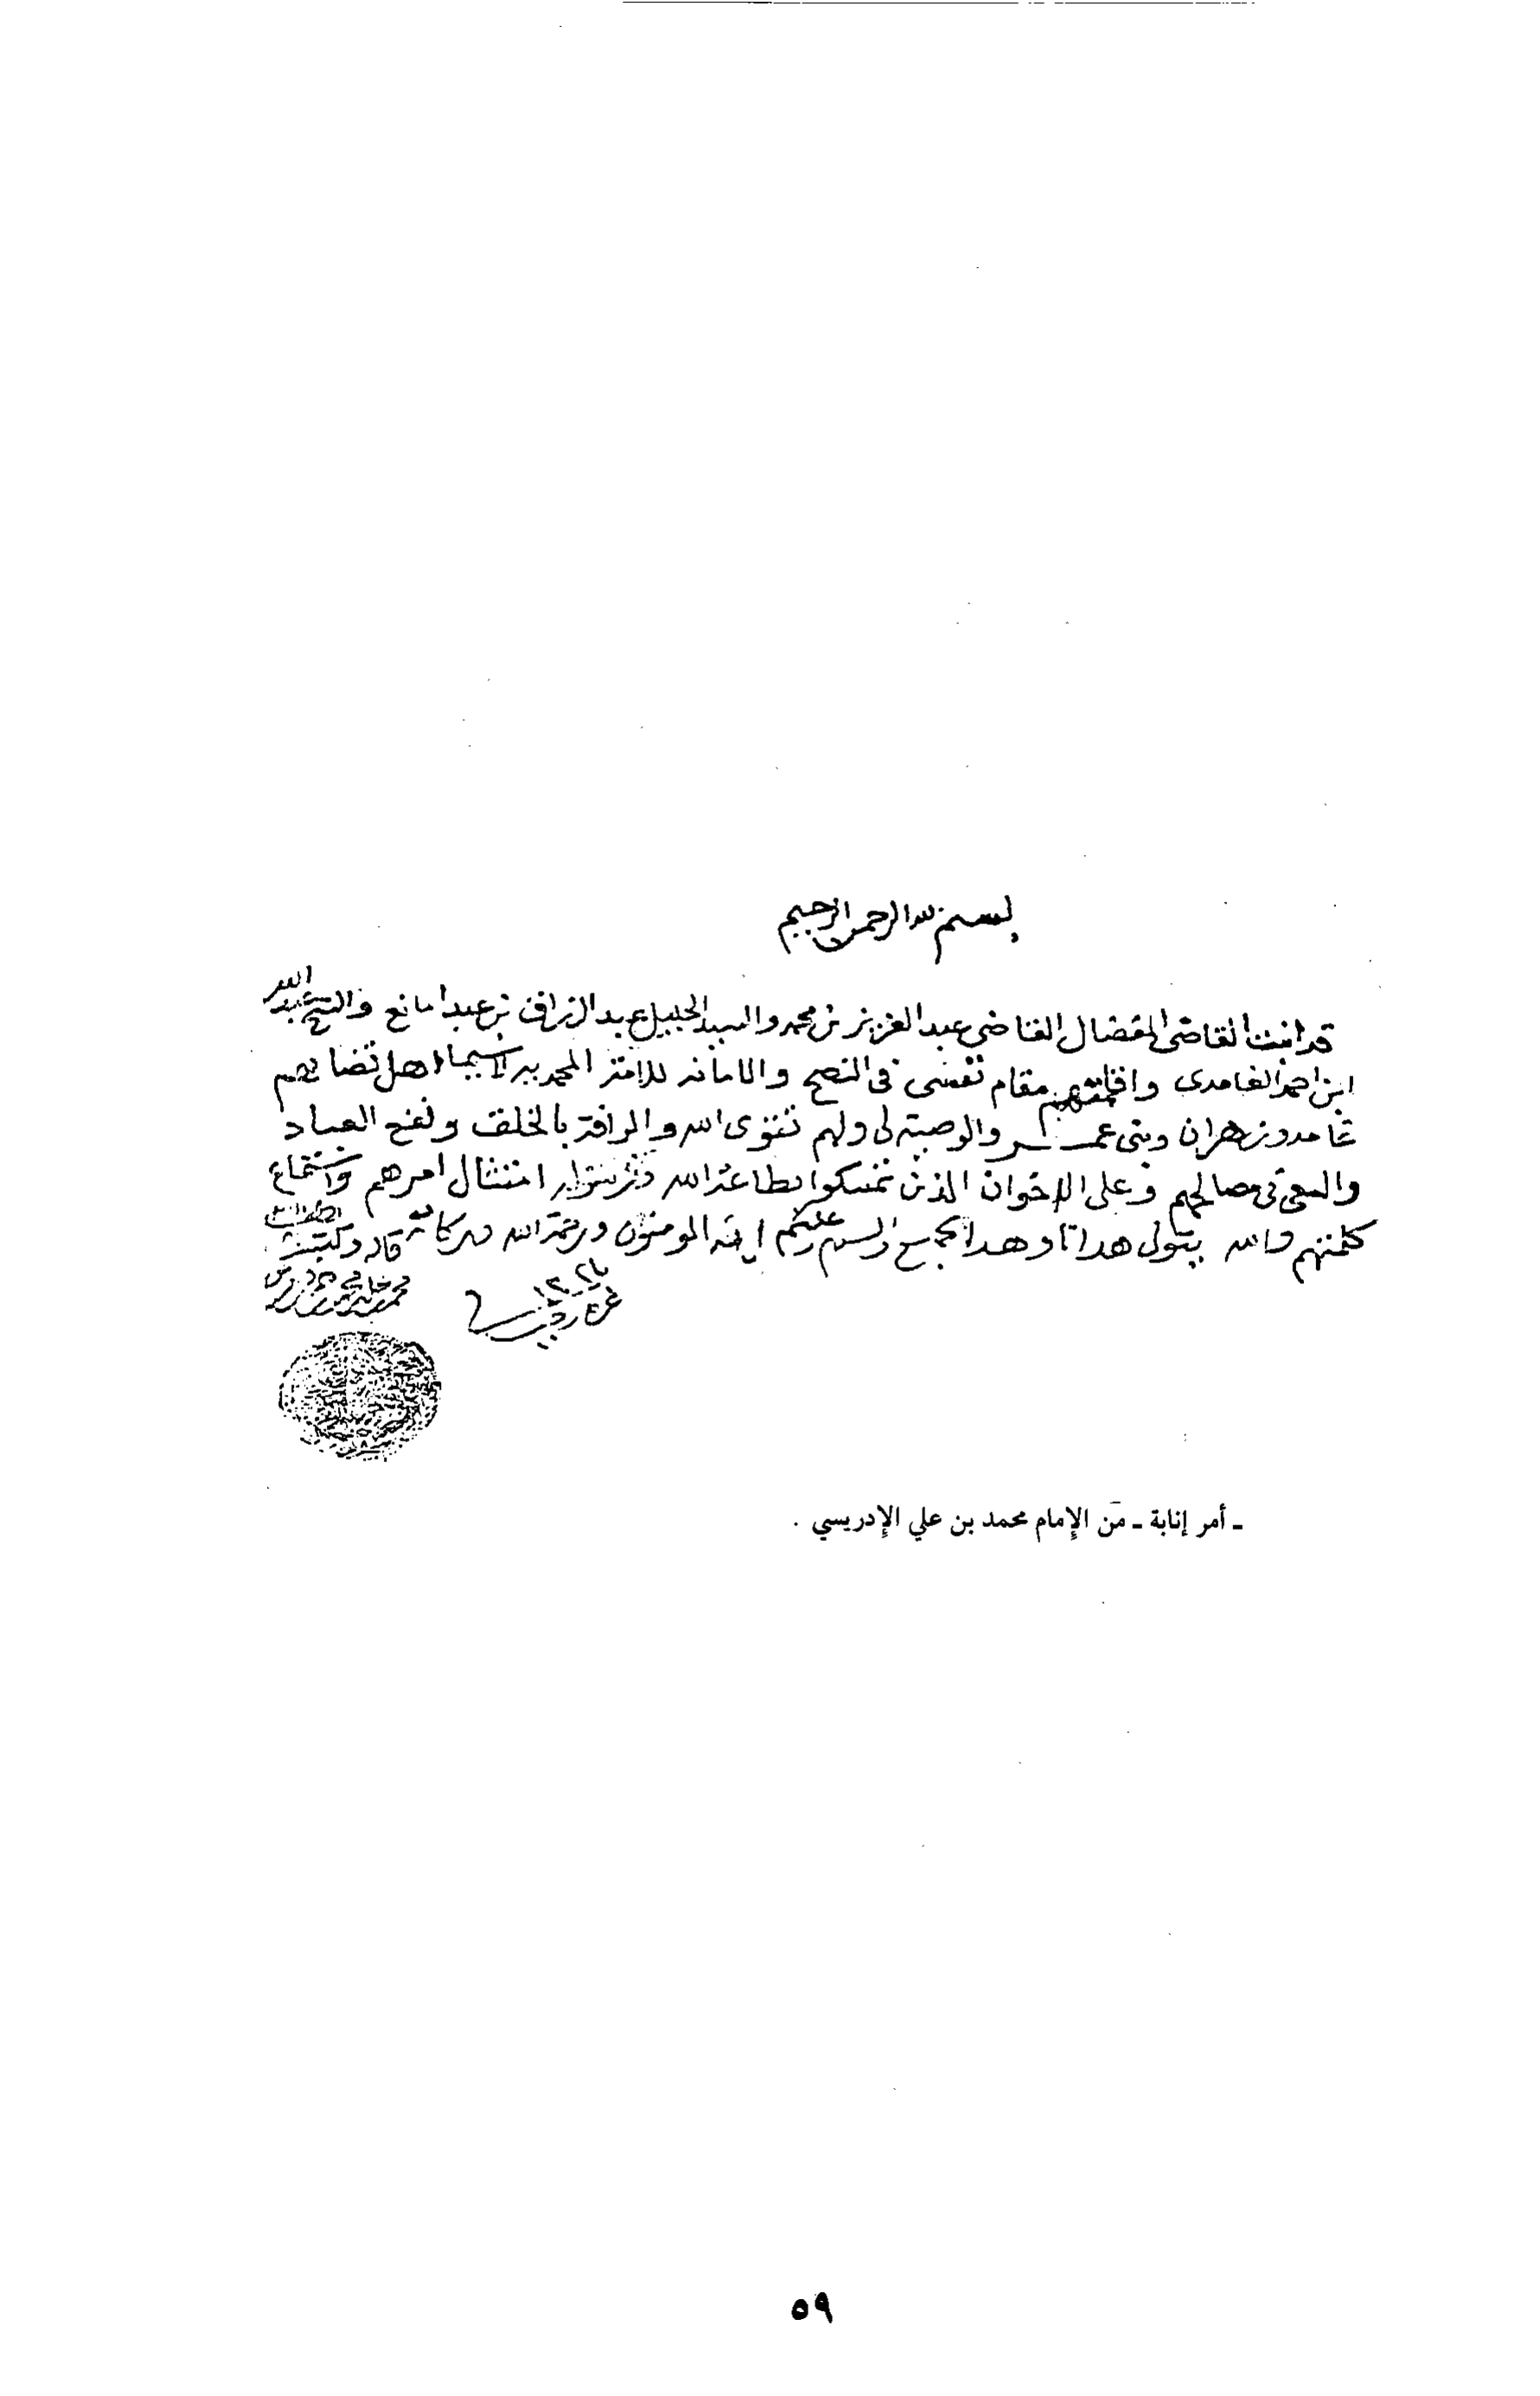 بسم الله الرحمن الرحيم
قد انبت القاضى المفضال القاضى عبد العزيز بن محمد والسيد الجليل عبد الرزاق بن عبد امانع والشيخ عبد الله
ابن احمد الغامدى واقمتهم مقام نفسى فى النصح والامانه للامة المحمديه لاسيما اهل قضايهم
غامد وزهران وبنى عمر والوصية لى ولهم تقوى الله والرافة بالخلق ونفع العباد
والسعى فى مصالحهم وعلى الاخوان الذين تمسكوا بطاعة الله امتثال امرهم واستماع
كلمتهم والله يتولى هدانا وهدا الجميع والسلم عليكم ايه المومنون ورحمة الله وبركاته قاله وكتبه
غرة
ـ أمر إنابة ـ من الإمام محمد بن علي الإدريسي .
٥٩